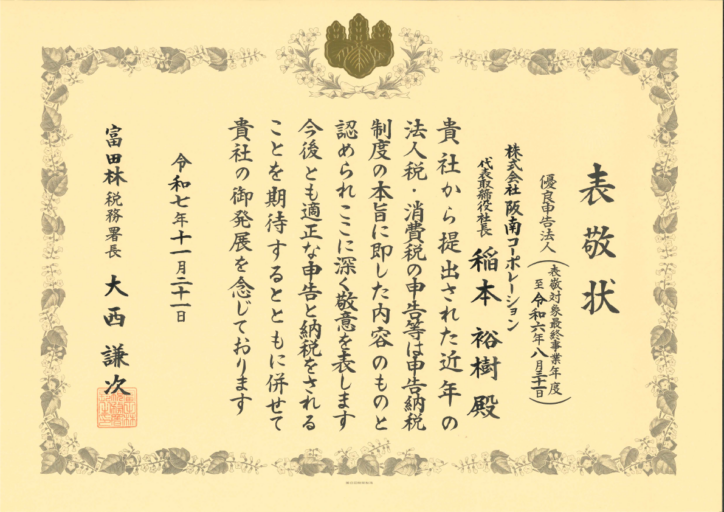 表敬状
優良申告法人(表敬対象最終事業年度 至令和六年八月三十一日)
株式会社阪南コーポレーション
代表取締役社長 稲本裕樹殿
貴社から提出された近年の
法人税・消費税の申告等は申告納税
制度の本旨に即した内容のものと
認められここに深く敬意を表します
今後とも適正な申告と納税をされる
ことを期待するとともに併せて
貴社の御発展を念じております
令和七年十一月二十一日
富田林税務署長 大西謙次